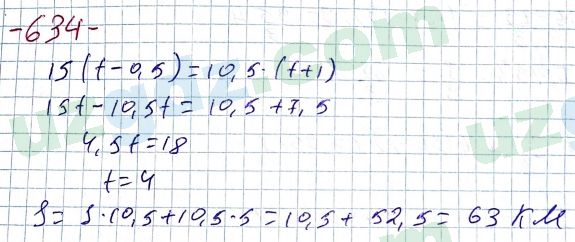 -634-
15(t-0,5)=10,5·(t+1)
15t-10,5t=10,5+7,5
4,5t=18
t=4
S=S·10,5+10,5·5=10,5+52,5=63 КМ